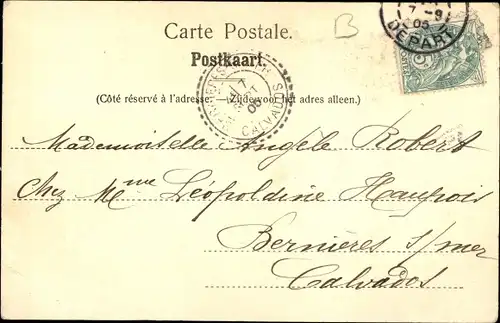 B
7 -9
05
DEPART
Carte Postale.
Postkaart.
CALVADOS
(Côté réservé à l'adresse. — Zijde voor het adres alleen.)
Mademoiselle Angèle Robert
Chez Mme Léopoldine Haupois
Bernières s/mer
Calvados